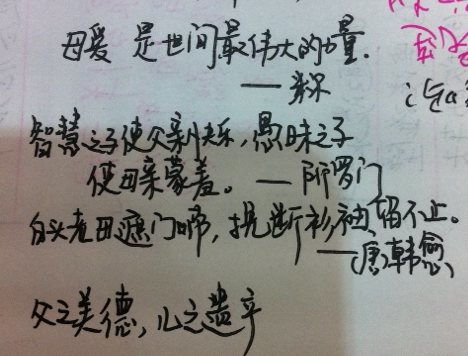 母爱是世间最伟大的力量.
——米尔
智慧之子使父亲快乐,愚昧之子
使母亲蒙羞。——所罗门
白头老母遮门啼,挽断衫袖留不止。
——唐韩愈
父之美德,儿之遗产